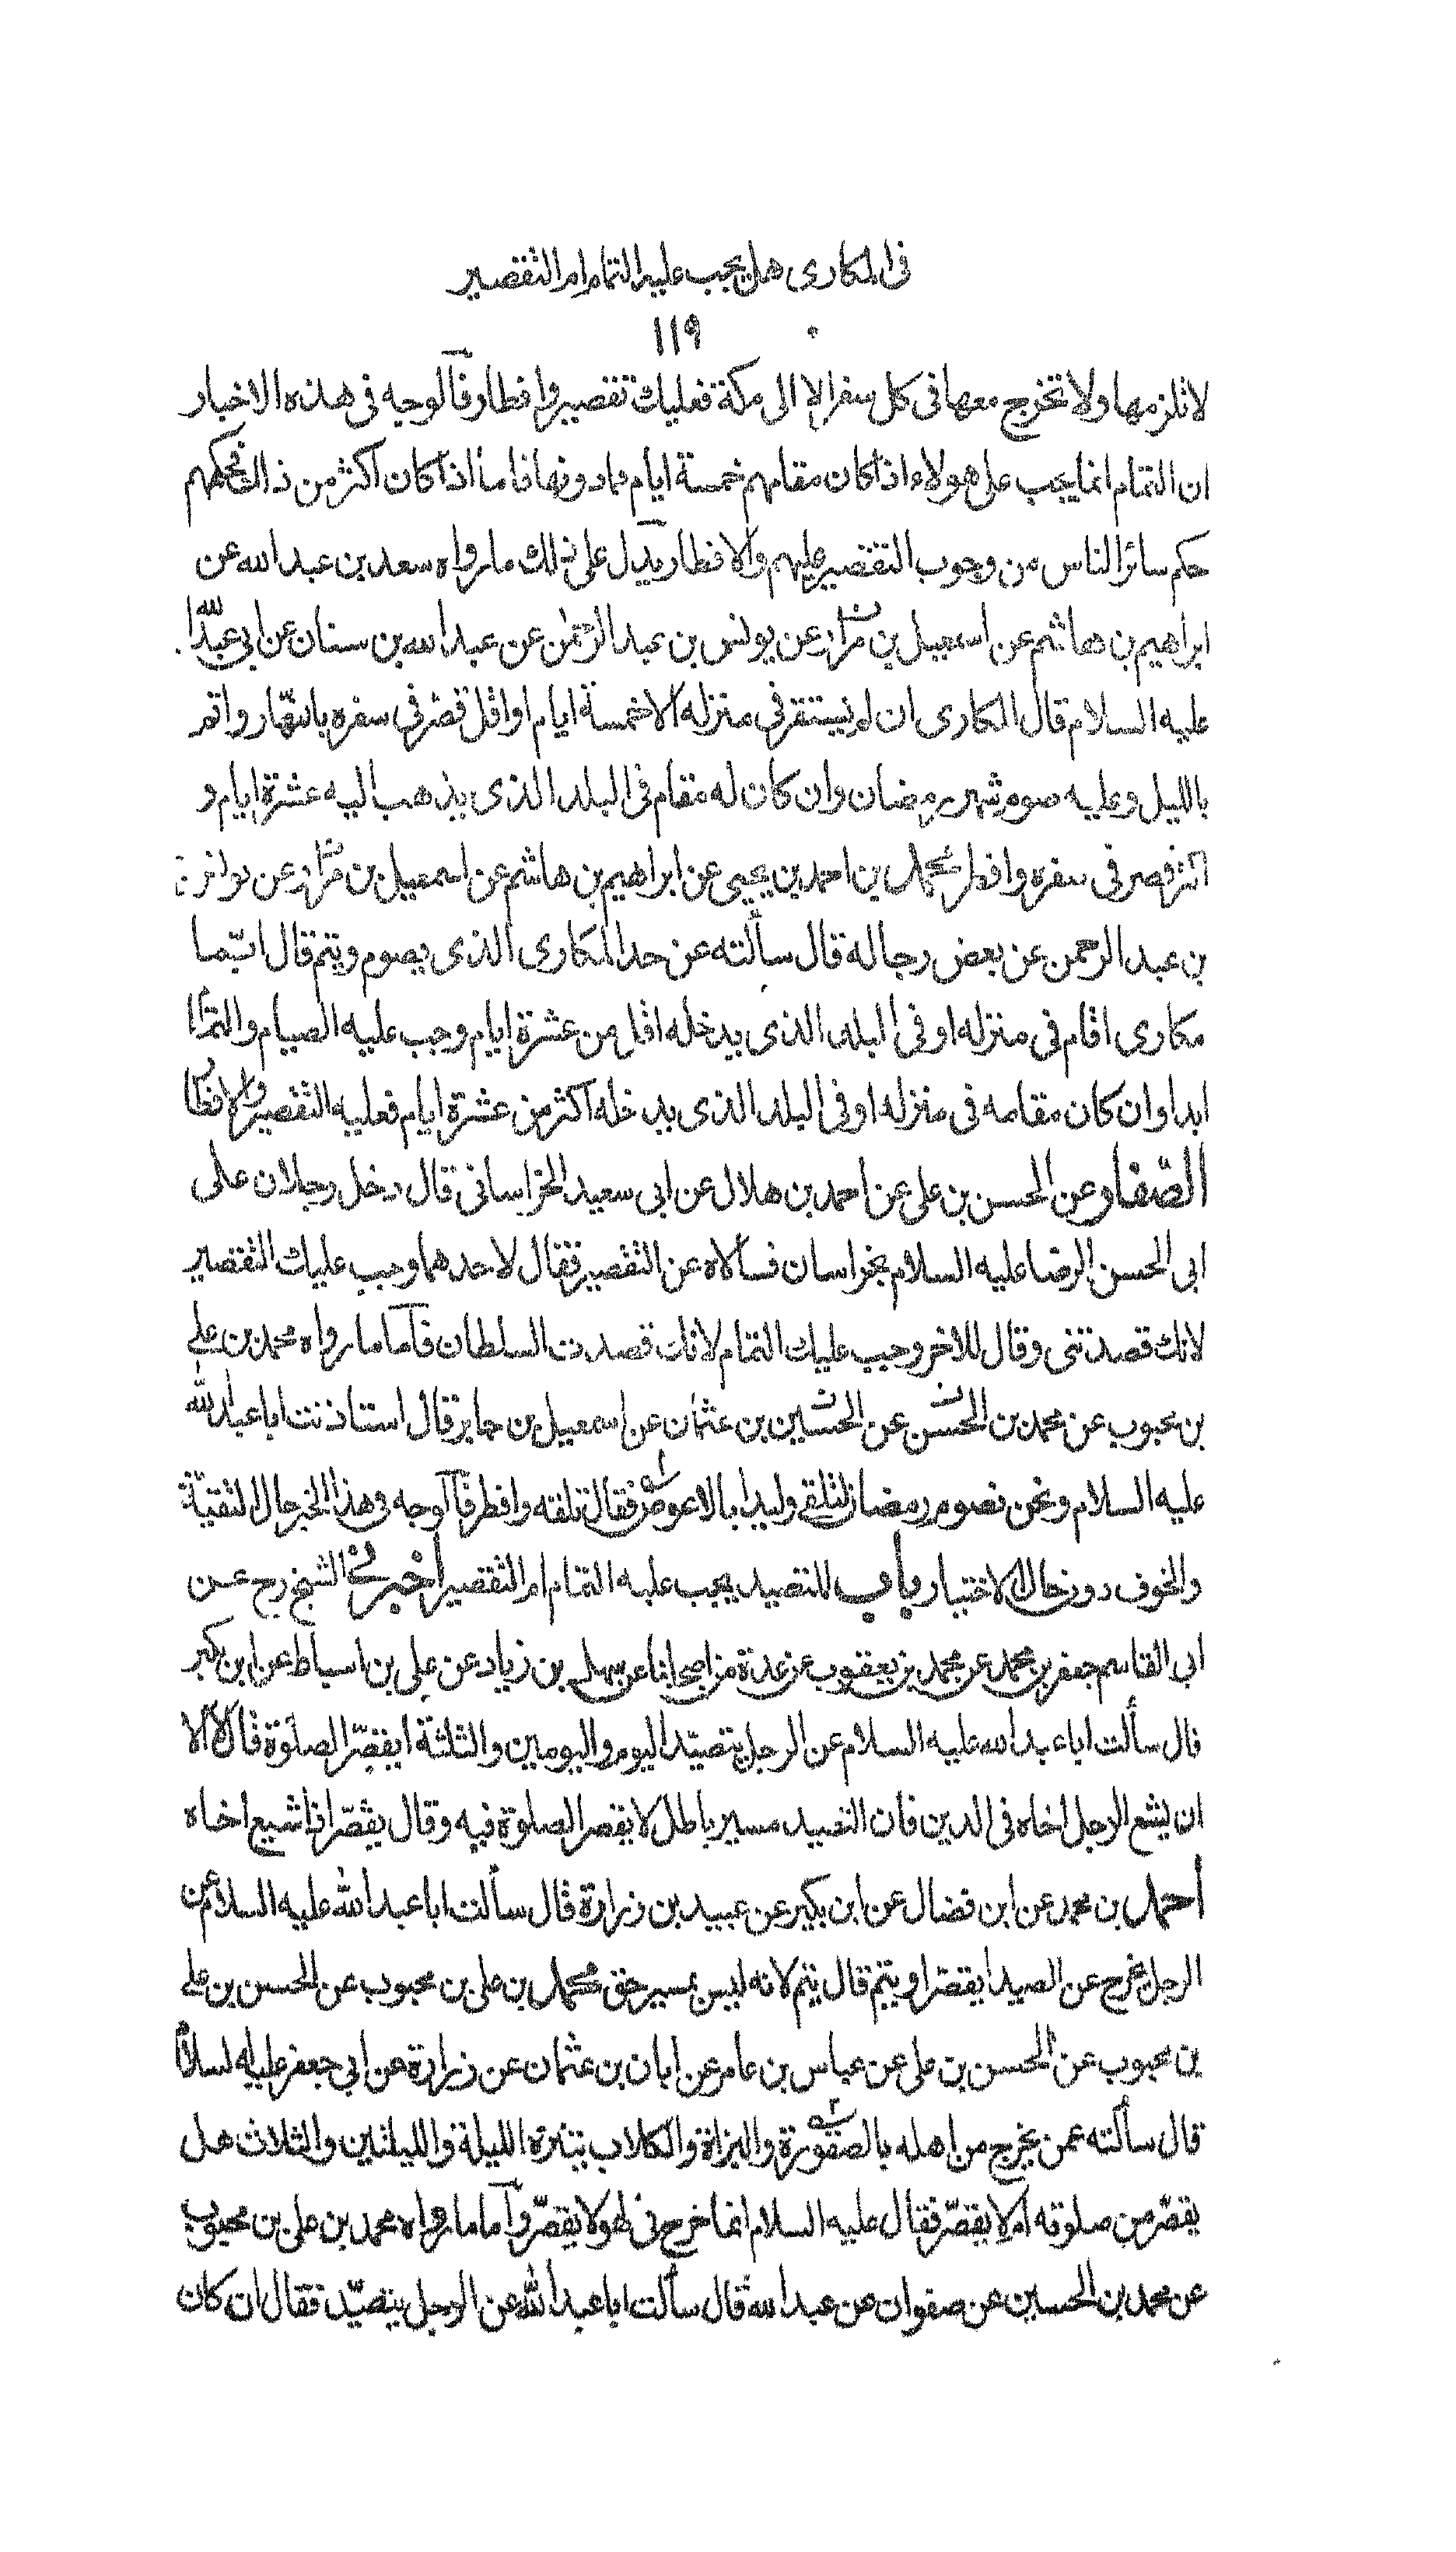 فى المكارى هل يجب عليه التمام ام التقصير
١١٩
لا تلزمها ولا تخرج معها فى كل سفر الا الى مكة فعليك تقصير وافطار فالوجه فى هذه الاخبار
ان التمام انما يجب على هولاء اذا كان مقامهم خمسة ايام فما دونها فاما اذا كان اكثر من ذالك فحكمهم
حكم سائر الناس من وجوب التقصير عليهم والافطار يدل على ذلك ما رواه سعد بن عبد الله عن
ابراهيم بن هاشم عن اسمعيل بن مرار عن يونس بن عبد الرحمٰن عن عبد الله بن سنان عن ابى عبد الله
عليه السلام قال المكارى ان لم يستقر فى منزله الا خمسة ايام او اقل قصر فى سفره بالنهار واتم
بالليل وعليه صوم شهر رمضان وان كان له مقام فى البلد الذى يذهب اليه عشرة ايام و
اكثر قصر فى سفره وافطر محمد بن احمد بن يحيى عن ابراهيم بن هاشم عن اسمعيل بن مرار عن يونس
بن عبد الرحمن عن بعض رجاله قال سألته عن حد المكارى الذى يصوم ويتم قال ايّما
مكارى اقام فى منزله او فى البلد الذى يدخله اقل من عشرة ايام وجب عليه الصيام والتمام
ابدا وان كان مقامه فى منزله او فى البلد الذى يدخله اكثر من عشرة ايام فعليه التقصير والافطار
الصّفار عن الحسن بن على عن احمد بن هلال عن ابى سعيد الخراسانى قال دخل رجلان على
ابى الحسن الرضا عليه السلام بخراسان فسألاه عن التقصير فقال لاحدهما وجب عليك التقصير
لانك قصدتنى وقال للاخر وجب عليك التمام لانك قصدت السلطان فاما ما رواه محمد بن على
بن محبوب عن محمد بن الحسن عن الحسين بن عثمان عن اسمعيل بن جابر قال استاذنت ابا عبد الله
عليه السلام ونحن نصوم رمضان لنلقى وليدا بالاعوص فقال تلقه وافطر فالوجه فى هذا الخبر حال التقيّة
والخوف دون حال الاختيار باب المتصيد يجب عليه التمام ام التقصير اخبرنى الشيخ رح عن
ابى القاسم جعفر بن محمد عن محمد بن يعقوب عن عدة من اصحابنا عن سهل بن زياد عن على بن اسباط عن ابن بكير
قال سألت ابا عبد الله عليه السلام عن الرجل يتصيّد اليوم واليومين والثلثة ايقصّر الصلوة قال لا الا
ان يشيع الرجل اخاه فى الدين فان التصيد مسير باطل لا يقصر الصلوة فيه وقال يقصّر اذا شيع اخاه
احمد بن محمد عن ابن فضال عن ابن بكير عن عبيد بن زرارة قال سألت ابا عبد الله عليه السلام عن
الرجل يخرج عن الصيد ايقصر او يتم قال يتم لانه ليس بمسير حق محمد بن على بن محبوب عن الحسن بن على
بن محبوب عن الحسن بن على عن عباس بن عامر عن ابان بن عثمان عن زرارة عن ابى جعفر عليه السلام
قال سألته عمن يخرج من اهله بالصقورة والبزاة والكلاب يتنزه الليلة والليلتين والثلاث هل
يقصّر من صلوته ام لا يقصّر فقال عليه السلام انما خرج فى لهو لا يقصّر واما ما رواه محمد بن على بن محبوب
عن محمد بن الحسين عن صفوان عن عبد الله قال سألت ابا عبد الله عن الرجل يتصيّد فقال ان كان